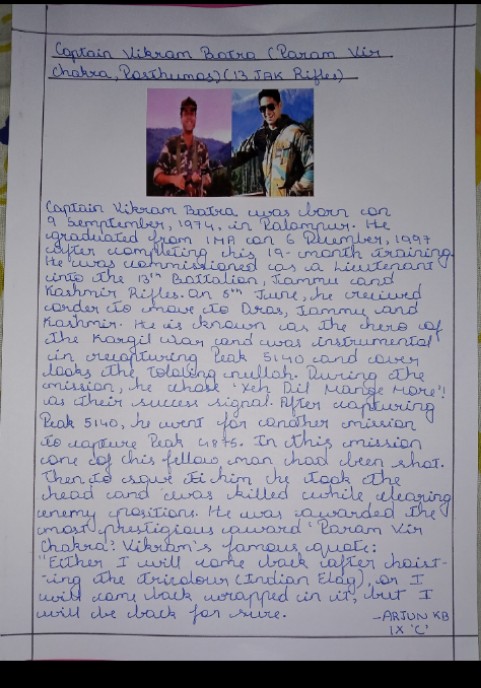 Captain Vikram Batra (Param Vir
Chakra, Posthumas) (13 JAK Rifles)
Captain Vikram Batra was born on
9 Semptember, 1974, in Palampur. He
graduated from IMA on 6 December, 1997
after completing his 19-month training.
He was commissioned as a Lieutenant
into the 13th Battalion, Jammu and
Kashmir Rifles. On 5th June, he recieved
order to move to Dras, Jammu and
Kashmir. He is known as the hero of
the Kargil War and was instrumental
in recapturing Peak 5140 and over
looks the Tololing nullah. During the
mission, he chose 'Yeh Dil Mange More'!
as their success signal. After capturing
Peak 5140, he went for another mission
to capture Peak 4875. In this mission
one of his fellow man had been shot.
Then to save him he took the
head and was killed while clearing
enemy positions. He was awarded the
most prestigious award 'Param Vir
Chakra'. Vikram's famous quote:
"Either I will come back after hoist-
-ing the tricolour (Indian Flag), or I
will come back wrapped in it, but I
will be back for sure.
-ARJUN KB
IX 'C'